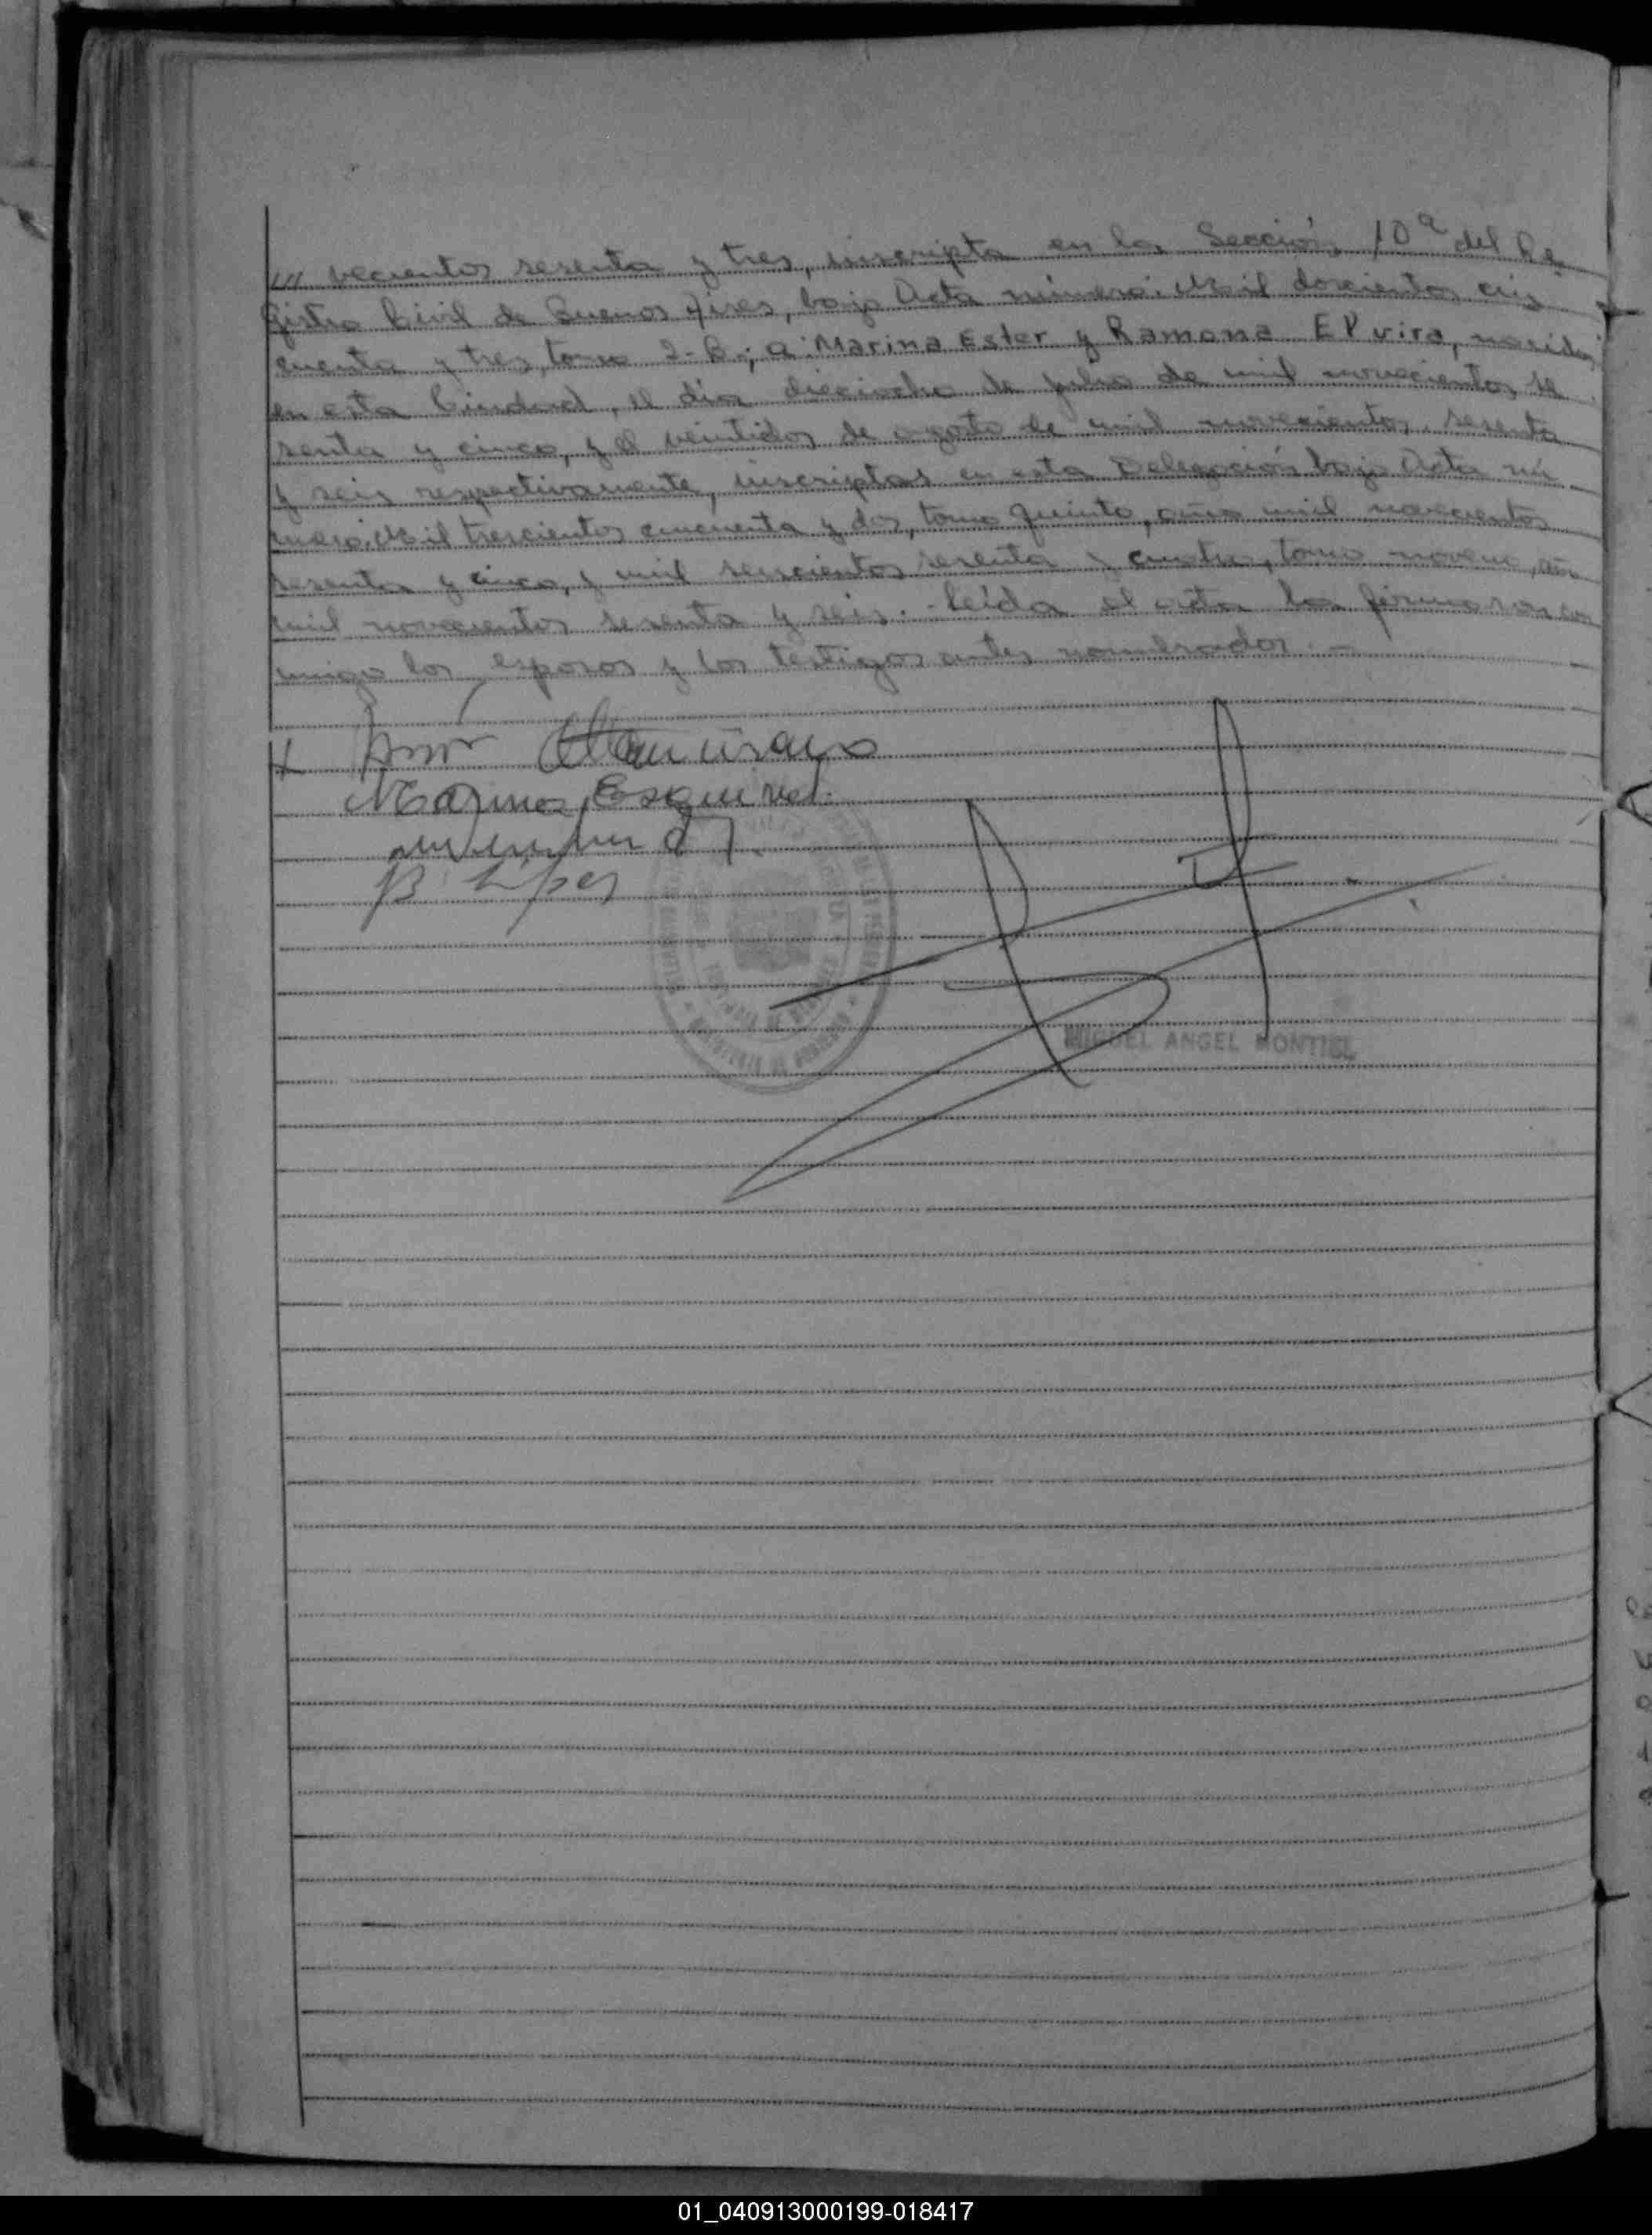 /// vecientos sesenta y tres, inscripta en la Sección 10ª del Re
gistro Civil de Buenos Aires, bajo Acta número: Mil doscientos cin
cuenta y tres, tomo 2-B; a: Marina Ester y Ramona Elvira, nacidas
en esta Ciudad, el día dieciocho de julio de mil novecientos se
senta y cinco, y el veintidos de agosto de mil novecientos sesenta
y seis respectivamente, inscriptas en esta Delegación bajo Acta nú
mero: Mil trescientos cincuenta y dos, tomo quinto, año mil novecientos
sesenta y cinco, y mil seiscientos sesenta y cuatro, tomo noveno, año
mil novecientos sesenta y seis.- Leída el acta la firman con
migo los esposos y los testigos antes nombrados.-
Marina Esquivel
B. López
MIGUEL ANGEL MONTIEL
01_040913000199-018417